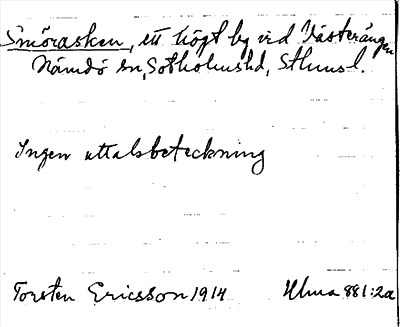 Smörasken, ett högt bg vid Västerängen
Nämdö sn, Sotholmshd, Sthmsl.
Ingen uttalsbeteckning
Torsten Ericsson 1914 Ulma 881:2a